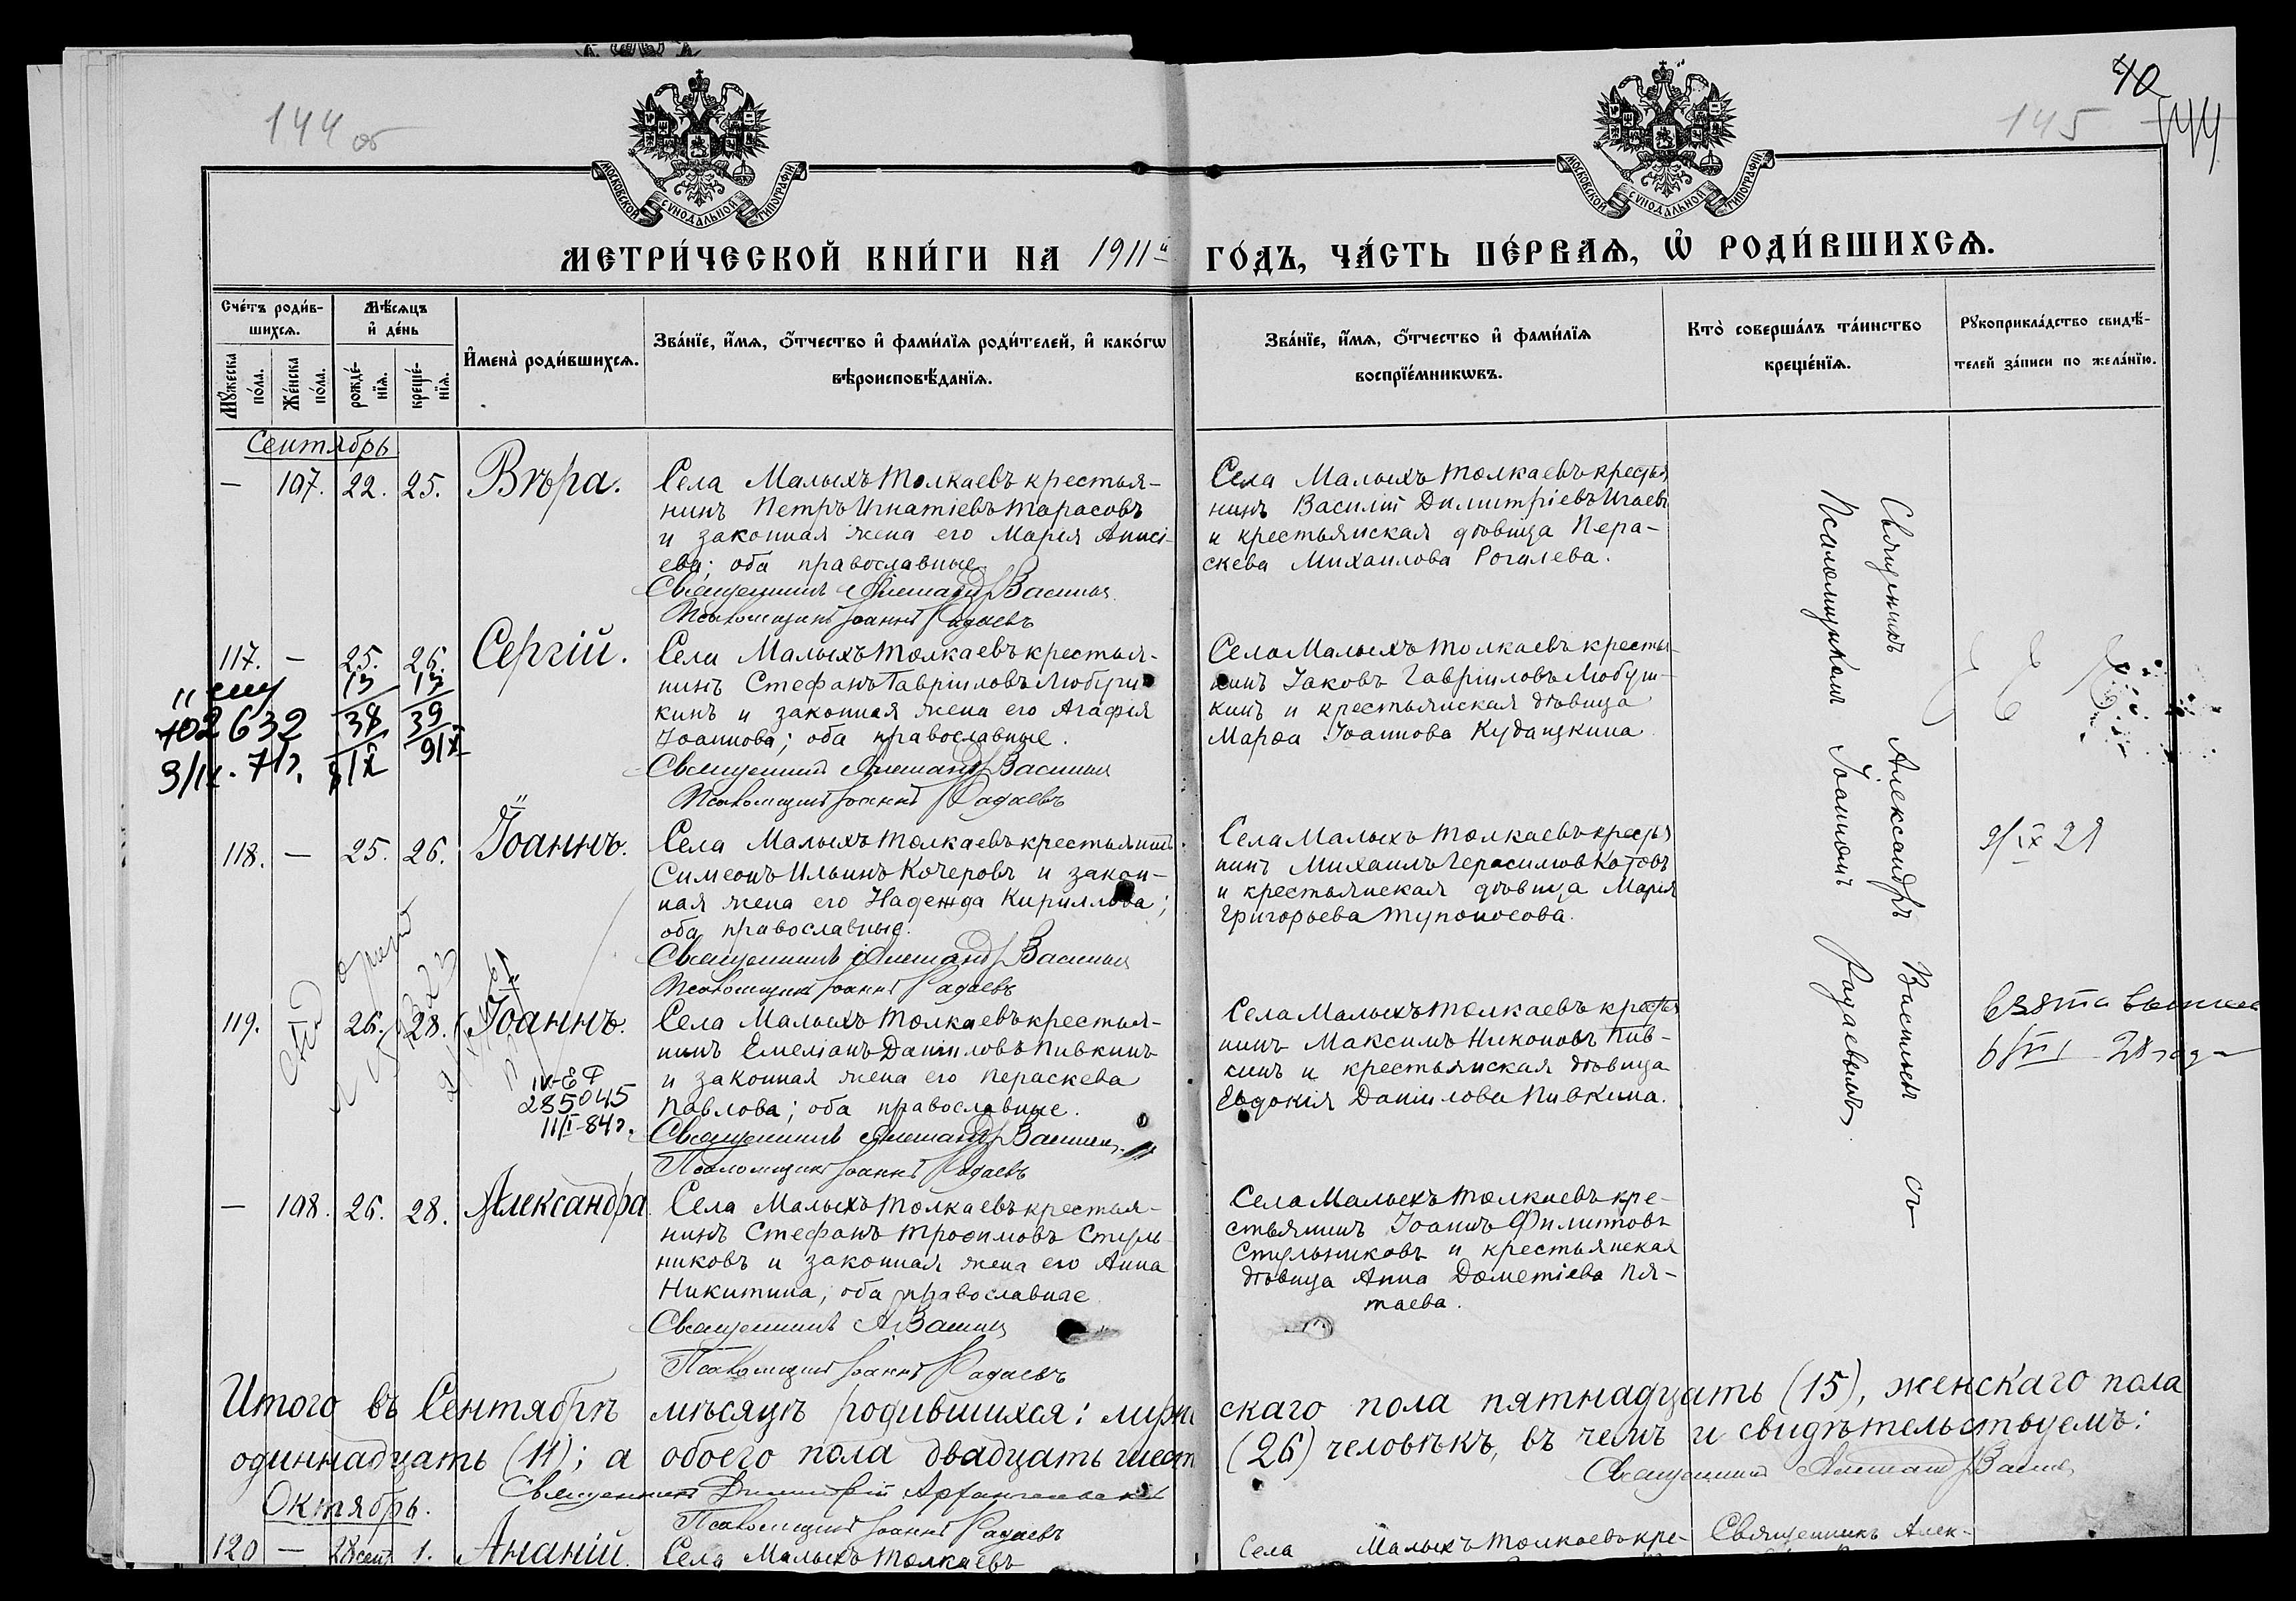 144 об
145
40
144
МОСКОВСКОЙ СѴНОДАЛЬНОЙ ТИПОГРАФІИ
МОСКОВСКОЙ СѴНОДАЛЬНОЙ ТИПОГРАФІИ
МЕТРИ́ЧЕСКОЙ КНИ́ГИ НА 1911й ГО́ДЪ, ЧА́СТЬ ПЕ́РВАѦ, Ѡ҆ РОДИ́ВШИХСѦ.
Сче́тъ роди́в-
шихсѧ.
Мѣ́сѧцъ
и҆ де́нь
Мꙋ́жеска
по́ла.
Же́нска
по́ла.
рожде́-
нїѧ.
креще́-
нїѧ.
И҆мена̀ роди́вшихсѧ.
Зва́нїе, и҆́мѧ, ѻ҆́тчество и҆ фами́лїѧ роди́телей, и҆ како́гѡ
вѣроисповѣ́данїѧ.
Зва́нїе, и҆́мѧ, ѻ҆́тчество и҆ фами́лїѧ
воспрїе́мникѡвъ.
Кто̀ соверша́лъ та́инство
креще́нїѧ.
Рꙋкоприкла́дство свидѣ́-
телей за́писи по жела́нїю.
Сентябрь
— 107. 22. 25. Вѣра.
Села Малыхъ Толкаевъ крестья-
нинъ Петръ Игнатіевъ Тарасовъ
и законная жена его Марія Аниси-
ева; оба православные.
Священникъ Александръ Васильевъ
Псаломщикъ Іоаннъ Радаевъ
Села Малыхъ Толкаевъ крестья
нинъ Василій Димитріевъ Игаевъ
и крестьянская дѣвица Пера-
скева Михаилова Рогалева.
117. — 25. 26. Сергій.
13 13
38 39
8/X 9/X
632
Села Малыхъ Толкаевъ крестья-
нинъ Стефанъ Гавріиловъ Любуш
кинъ и законная жена его Агафія
Іоаннова; оба православные.
Священникъ Александръ Васильевъ
Псаломщикъ Іоаннъ Радаевъ
Села Малыхъ Толкаевъ крестья-
нинъ Іаковъ Гавріиловъ Любуш-
кинъ и крестьянская дѣвица
Марѳа Іоаннова Кудашкина
118. — 25. 26. Іоаннъ.
Села Малыхъ Толкаевъ крестьянинъ
Симеонъ Ильинъ Кочеровъ и закон-
ная жена его Надежда Кириллова;
оба православные.
Священникъ Александръ Васильевъ
Псаломщикъ Іоаннъ Радаевъ
Села Малыхъ Толкаевъ крестья
нинъ Михаилъ Герасимовъ Котовъ
и крестьянская дѣвица Марія
Григорьева Тупоносова.
9/IX 29
119. 26. 28. Іоаннъ.
IV-ЕР
285045
Села Малыхъ Толкаевъ крестья-
нинъ Емеліанъ Даніиловъ Пивкинъ
и законная жена его Пераскева
Павлова; оба православные.
Священникъ Александръ Васильевъ
Псаломщикъ Іоаннъ Радаевъ
Села Малыхъ Толкаевъ крестья
нинъ Максимъ Никоновъ Пив-
кинъ и крестьянская дѣвица
Евдокія Даніилова Пивкина.
взята
28 года
— 108. 26. 28. Александра.
Села Малыхъ Толкаевъ крестья-
нинъ Стефанъ Трофимовъ Стуль
никовъ и законная жена его Анна
Никитина; оба православные
Священникъ А. Васильевъ
Псаломщикъ Іоаннъ Радаевъ
Села Малыхъ Толкаевъ кре-
стьянинъ Іоаннъ Филипповъ
Стульниковъ и крестьянская
дѣвица Анна Дометіева Пя-
таева.
Священникъ Александръ Васильевъ съ
Псаломщикомъ Іоанномъ Радаевымъ.
Итого въ Сентябрѣ мѣсяцѣ родившихся: муже скаго пола пятнадцать (15), женскаго пола
одиннадцать (11); а обоего пола двадцать шесть (26) человѣкъ, въ чемъ и свидѣтельствуемъ:
Священникъ Александръ Васильевъ
Священникъ Димитрій Архангельскій
Псаломщикъ Іоаннъ Радаевъ
Октябрь.
120 — 28 сент 1. Ананій.
Села Малыхъ Толкаевъ
Села Малыхъ Толкаевъ кре-
Священникъ Алек-